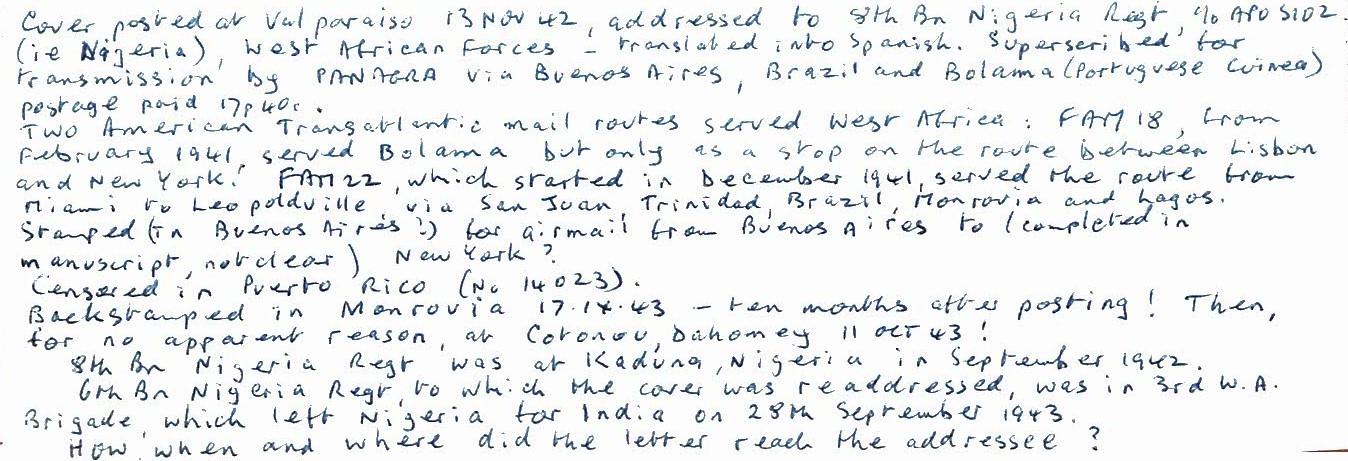 Cover posted at Valparaiso 13 Nov 42, addressed to 8th Bn Nigeria Regt, c/o APO S102
(ie Nigeria), West African Forces - translated into Spanish. Superscribed for
transmission by PANAGRA via Buenos Aires, Brazil and Bolama (Portuguese Guinea)
postage paid 17p 40c.
Two American Transatlantic mail routes served West Africa: FAM 18, from
February 1941, served Bolama but only as a stop on the route between Lisbon
and New York. FAM 22, which started in December 1941, served the route from
Miami to Leopoldville, via San Juan, Trinidad, Brazil, Monrovia and Lagos.
Stamped (in Buenos Aires?) for airmail from Buenos Aires to (completed in
manuscript, not clear) New York?
Censored in Puerto Rico (No 14023).
Backstamped in Monrovia 17.IX.43 - ten months after posting! Then,
for no apparent reason, at Cotonou, Dahomey 11 OCT 43!
8th Bn Nigeria Regt was at Kaduna, Nigeria in September 1942.
6th Bn Nigeria Regt, to which the cover was readdressed, was in 3rd W.A.
Brigade, which left Nigeria for India on 28th September 1943.
How, when and where did the letter reach the addressee?